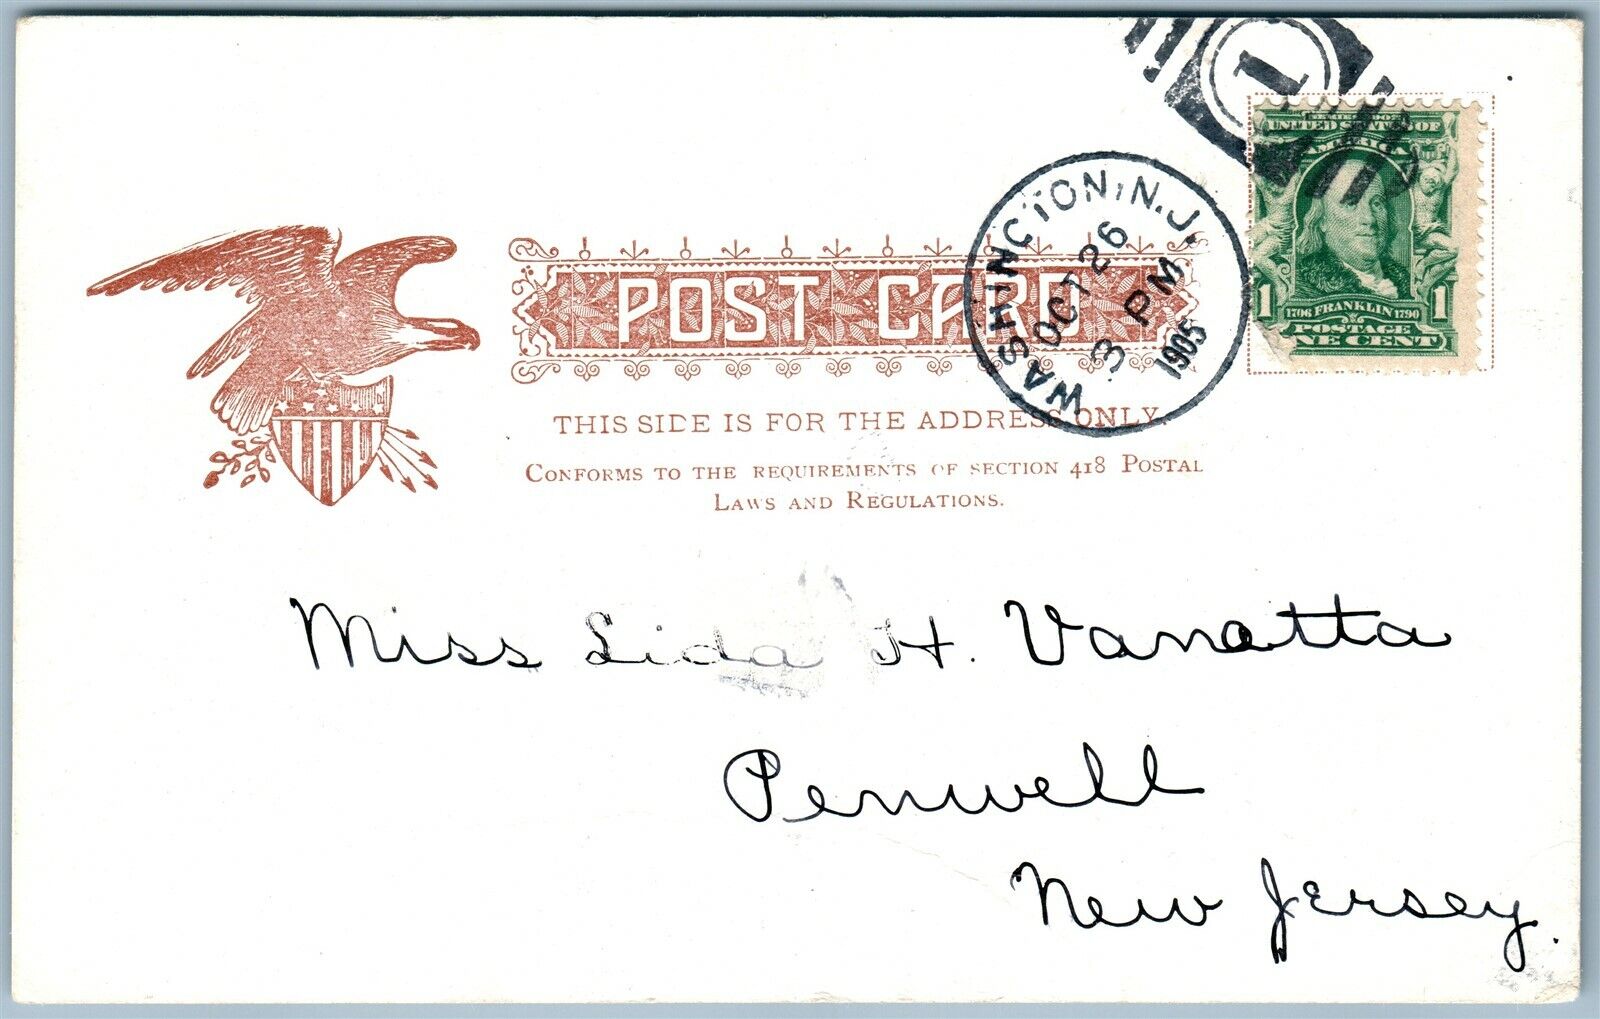 1
SERIES 1902
UNITED STATES OF
AMERICA
1 1706 FRANKLIN 1790 1
POSTAGE
NE CENT
WASHINGTON, N.J.
OCT 26
3 PM
1905
POST CARD
THIS SIDE IS FOR THE ADDRESS ONLY.
CONFORMS TO THE REQUIREMENTS OF SECTION 418 POSTAL
LAWS AND REGULATIONS.
Miss Lida H. Vanatta
Penwell
New Jersey.